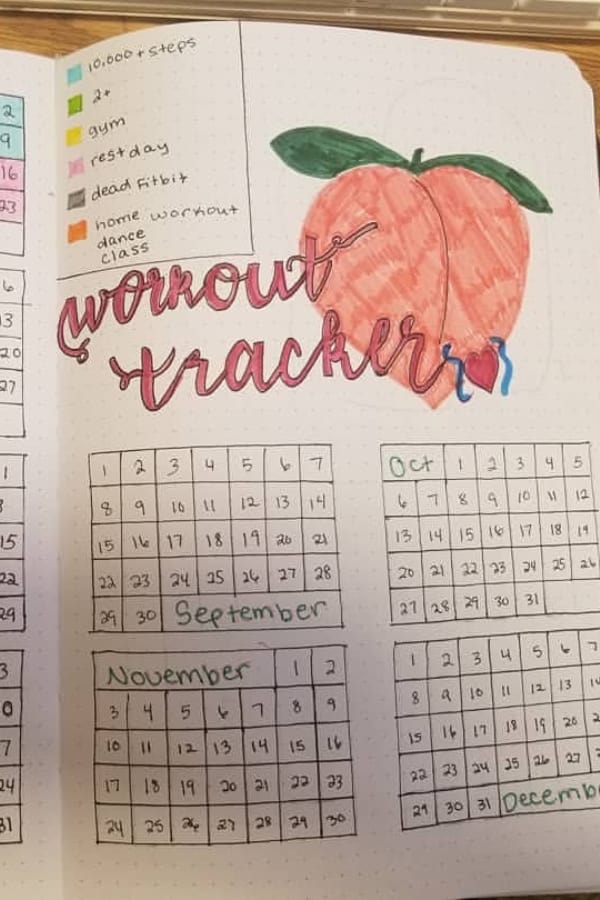 10,000+ steps
2+
gym
rest day
dead Fitbit
home workout
dance
class
workout
tracker
2
9
16
23
6
13
20
27
1
15
22
29
3
7
24
31
1 2 3 4 5 6 7
8 9 10 11 12 13 14
15 16 17 18 19 20 21
22 23 24 25 26 27 28
29 30 September
Oct 1 2 3 4 5
6 7 8 9 10 11 12
13 14 15 16 17 18 19
20 21 22 23 24 25 26
27 28 29 30 31
November 1 2
3 4 5 6 7 8 9
10 11 12 13 14 15 16
17 18 19 20 21 22 23
24 25 26 27 28 29 30
1 2 3 4 5 6 7
8 9 10 11 12 13 14
15 16 17 18 19 20 2
22 23 24 25 26 27
29 30 31 Decemb